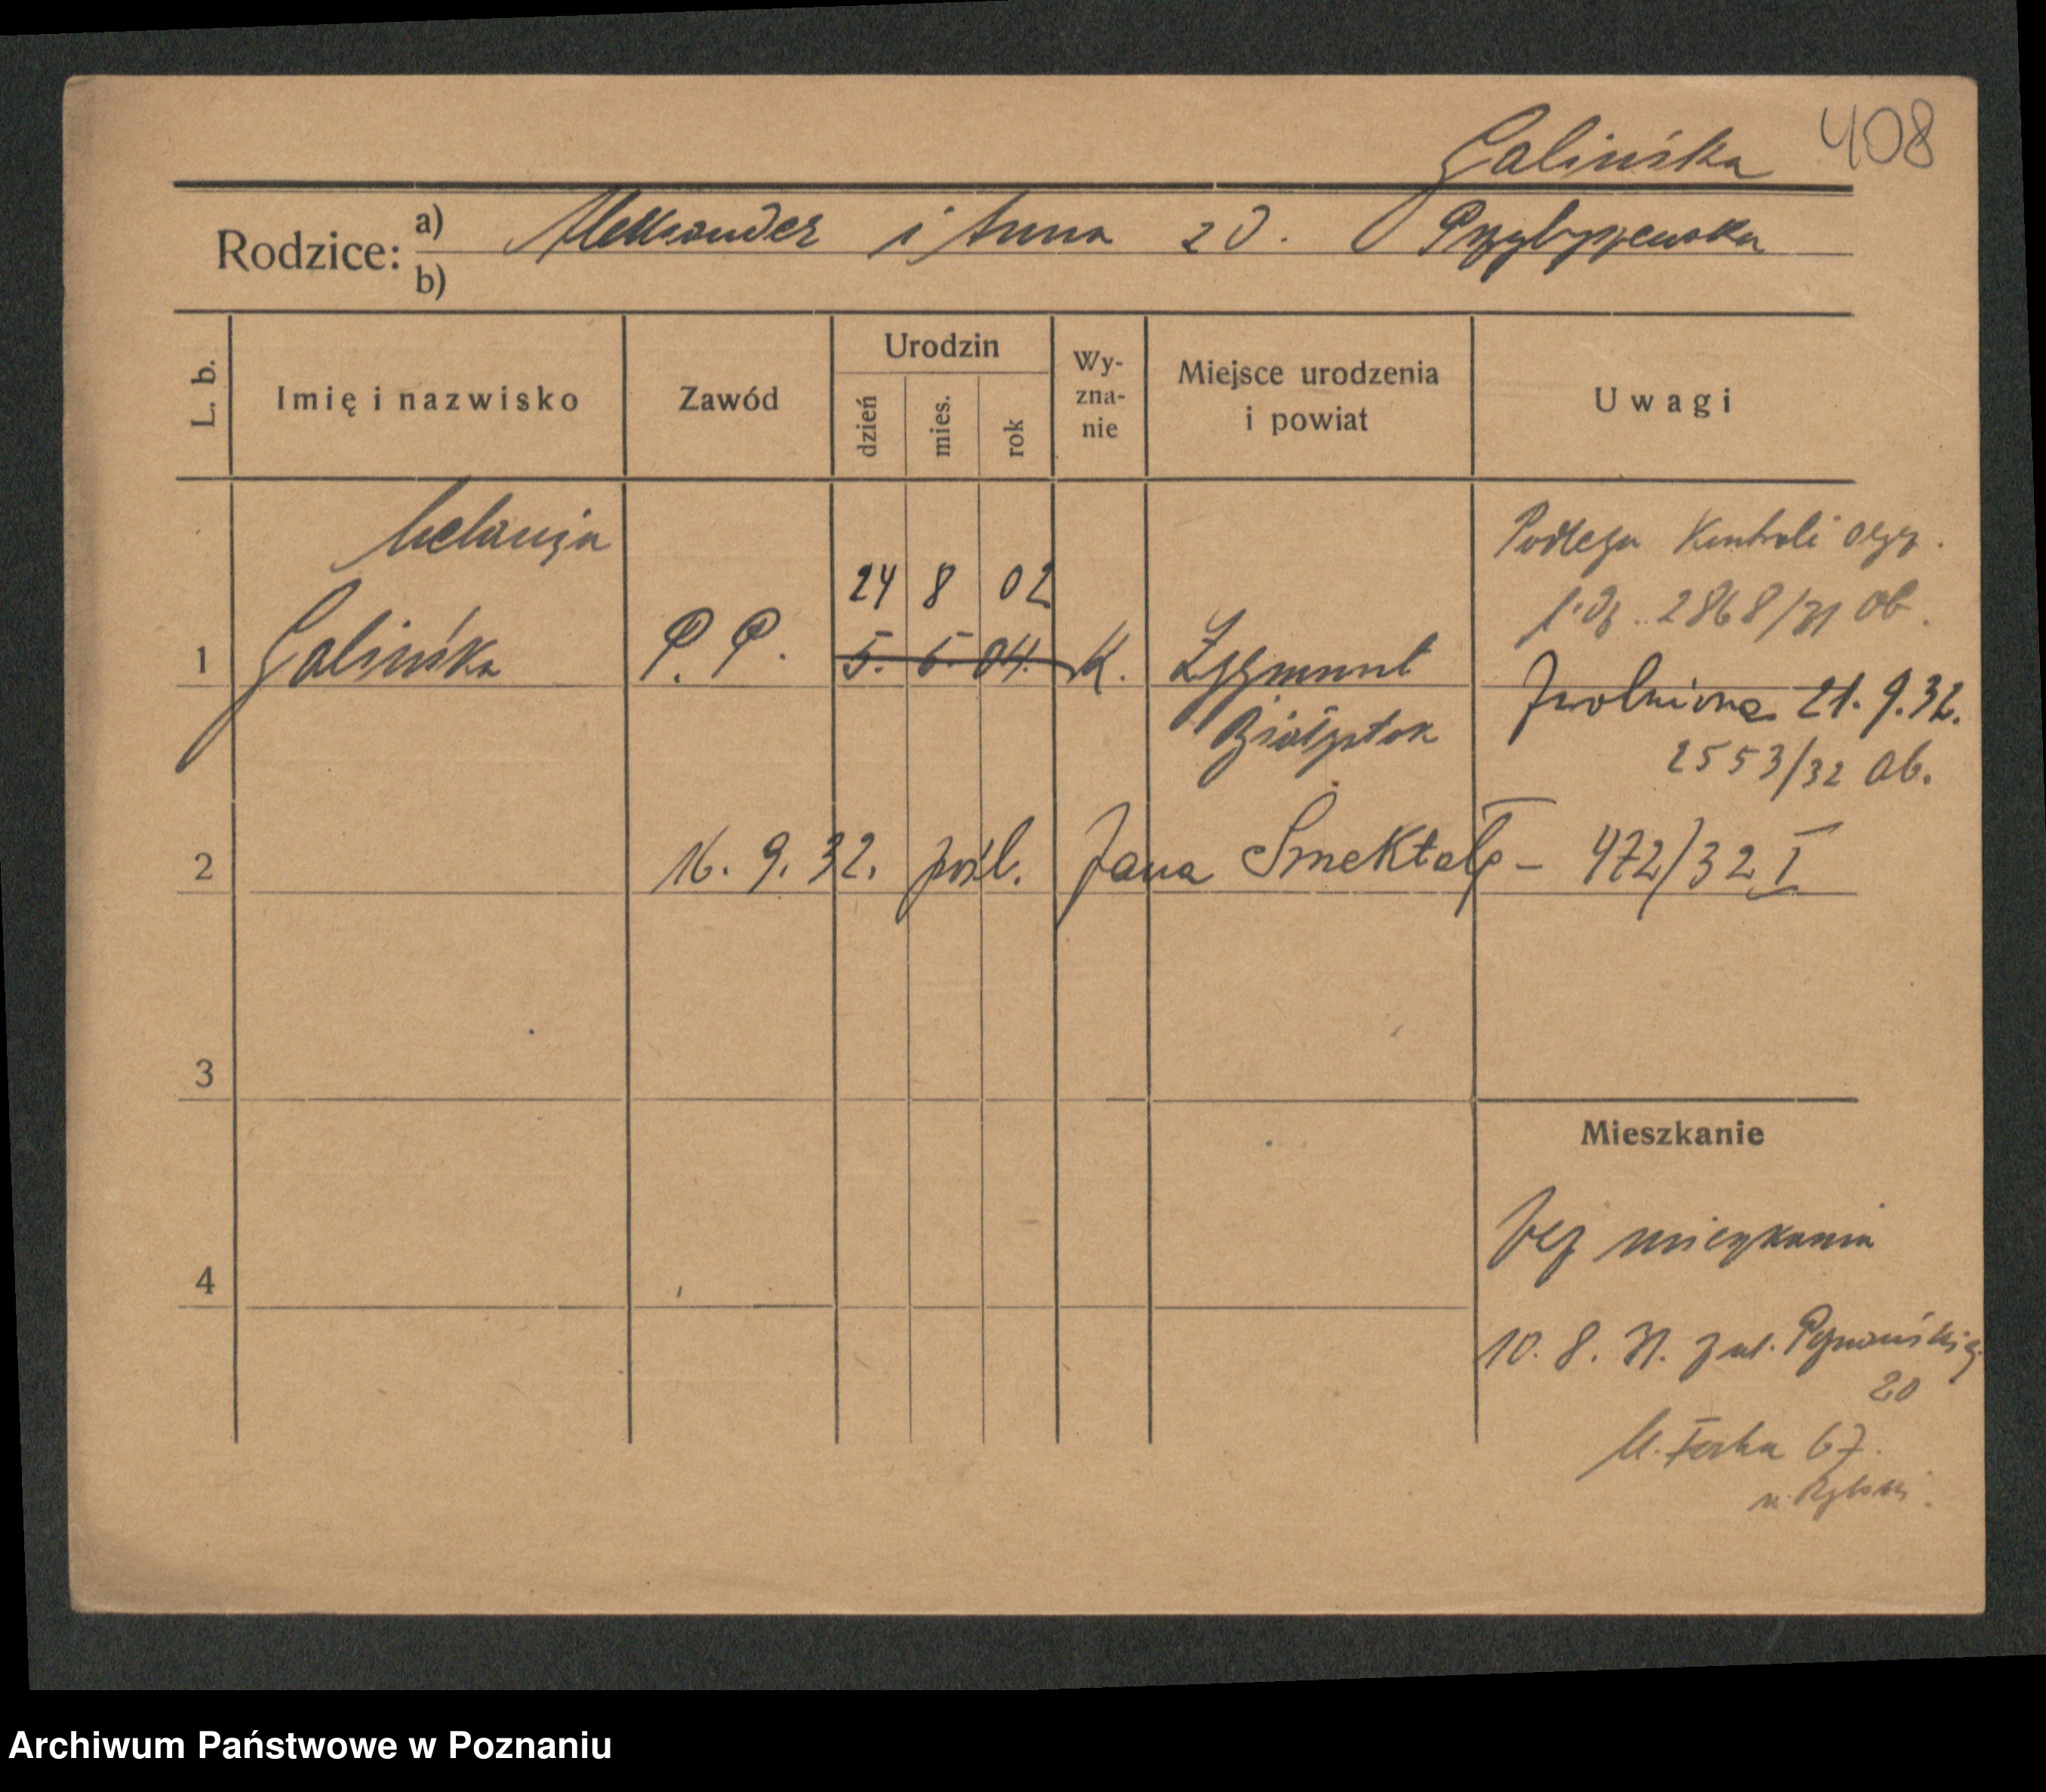 Galińska 408
Rodzice: a) Aleksander i Anna z d. Przybyszewska
b)
L. b.
Imię i nazwisko
Zawód
Urodzin
dzień
mies.
rok
Wy-
zna-
nie
Miejsce urodzenia
i powiat
Uwagi
Melanja
Podlega Kontroli
24 8 02
2868/31 Ob.
1 Galińska P. P. 5. 5. 04. K. Zygmunt
Zwolniona 21. 9. 32.
Białystok
2553/32 Ob.
2 16. 9. 32. pośl. Jana Smektałę – 472/32 I
3
Mieszkanie
bez mieszkania
4
10. 8. 31. z ul.
20
67.
Archiwum Państwowe w Poznaniu